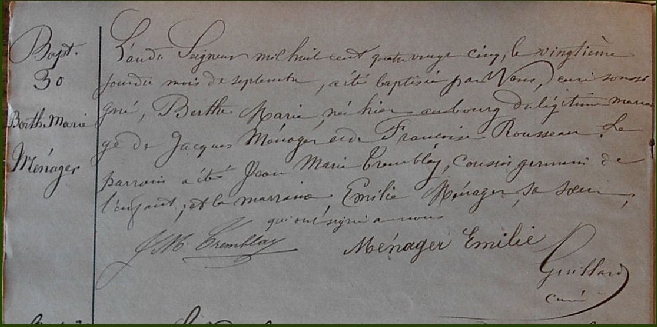 Bapt.
30
Berthe Marie
Ménager
L'an du Seigneur mil huit cent quatre vingt cinq, le vingtième
jour du mois de septembre, a été baptisée par Nous, curé soussi
gné, Berthe Marie, née hier au bourg du légitime maria
ge de Jacques Ménager et de Françoise Rousseau. Le
parrain a été Jean Marie Tremblay, cousin germain de
l'enfant, et la marraine Emilie Ménager, sa sœur,
qui ont signé avec nous
J. M. Tremblay Ménager Emilie
Guillard
curé